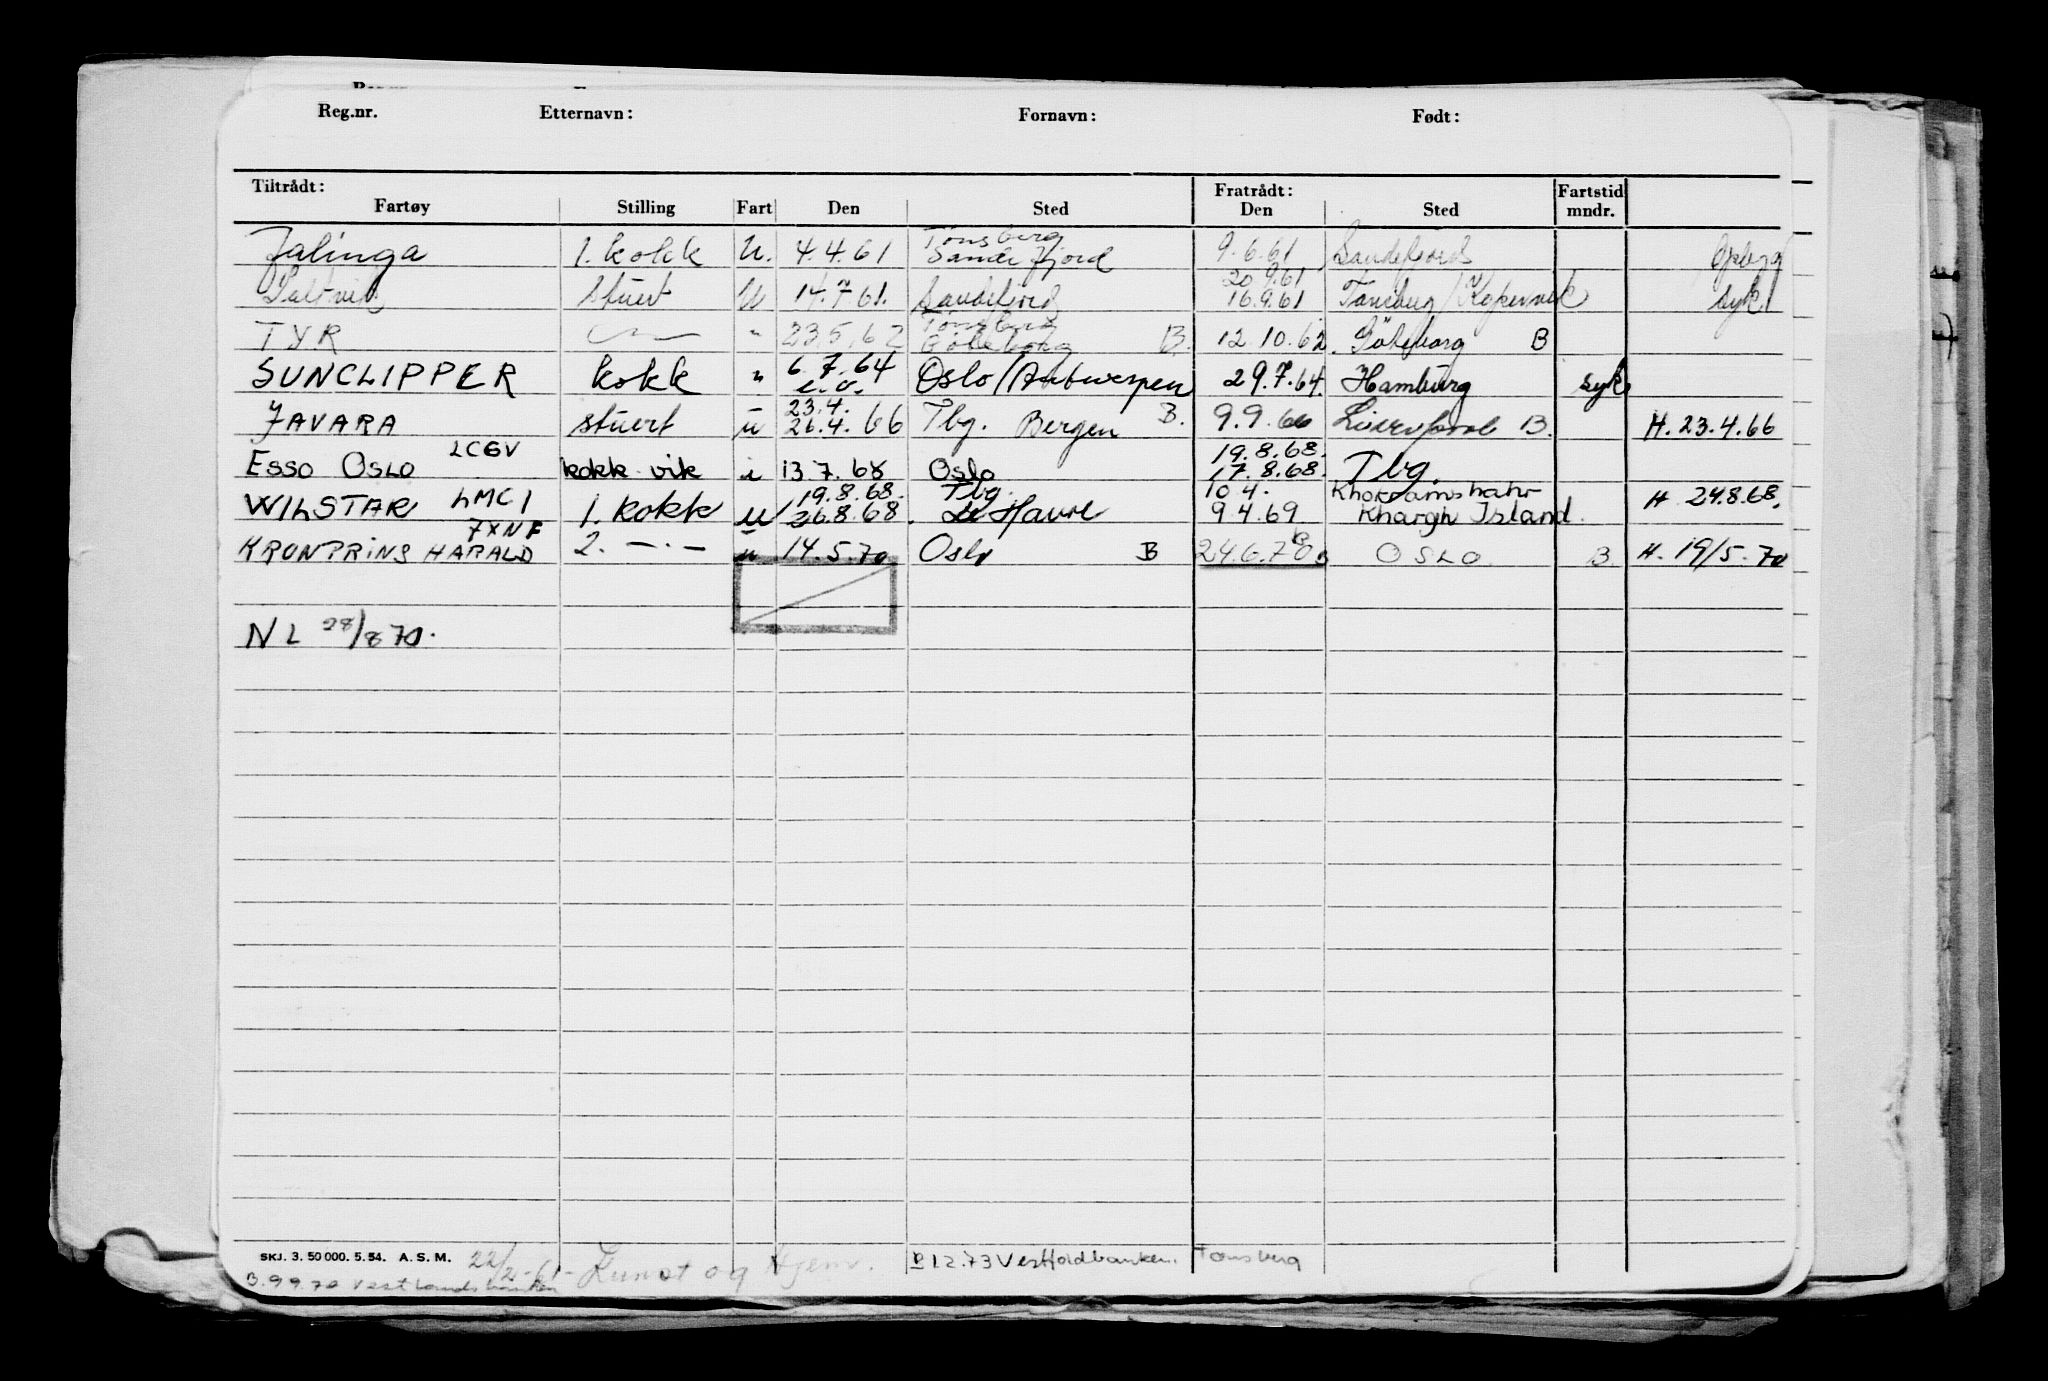 Reg.nr. Etternavn: Fornavn: Født:
Tiltrådt: Fratrådt: Fartstid
Fartøy Stilling Fart Den Sted Den Sted mndr.
Tønsberg
Jalinga 1. kokk U. 4.4.61 Sandefjord 9.6.61 Sandefjord
20.9.61
Saltvik stuert U 14.7.61. Sandefjord 16.9.61 Tønsberg/Kopervik syk
Tønsberg
TYR " 23.5.62 Göteborg B. 12.10.62 Göteborg B
6.7.64
SUNCLIPPER kokk " e.o. Oslo/Antwerpen 29.7.64. Hamburg syk
23.4.
JAVARA stuert u 26.4.66 Tbg. Bergen B. 9.9.66 Liverpool B. H. 23.4.66
LCGV 19.8.68.
ESSO OSLO kokk vik i 13.7.68 Oslo 17.8.68. Tbg.
19.8.68. Tbg. 10.4. Khorramshahr
WILSTAR LMCI 1. kokk u 26.8.68. Le Havre 9.4.69 Khargh Island. H 24.8.68.
7XNF
KRONPRINS HARALD 2. —.— u 14.5.70 Oslo B 24.6.70 B OSLO B. H. 19/5.70
NL 28/8 70.
SKJ. 3. 50 000. 5. 54. A. S. M. 22/2-61- og Hjem. 12.73 Vestfoldbanken. Tønsberg
B. 9.9.70 Vestlandsbanken